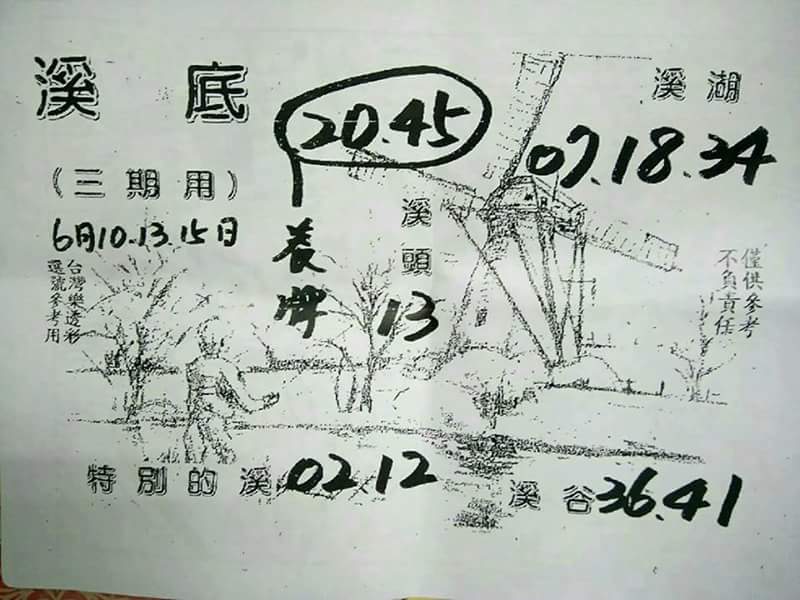 溪底
(三期用)
6月10.13.15日
台灣樂透彩
選號參考用
20.45
養牌
溪頭
13
溪湖
07.18.34
僅供參考
不負責任
特別的溪 02 12
溪谷 36.41